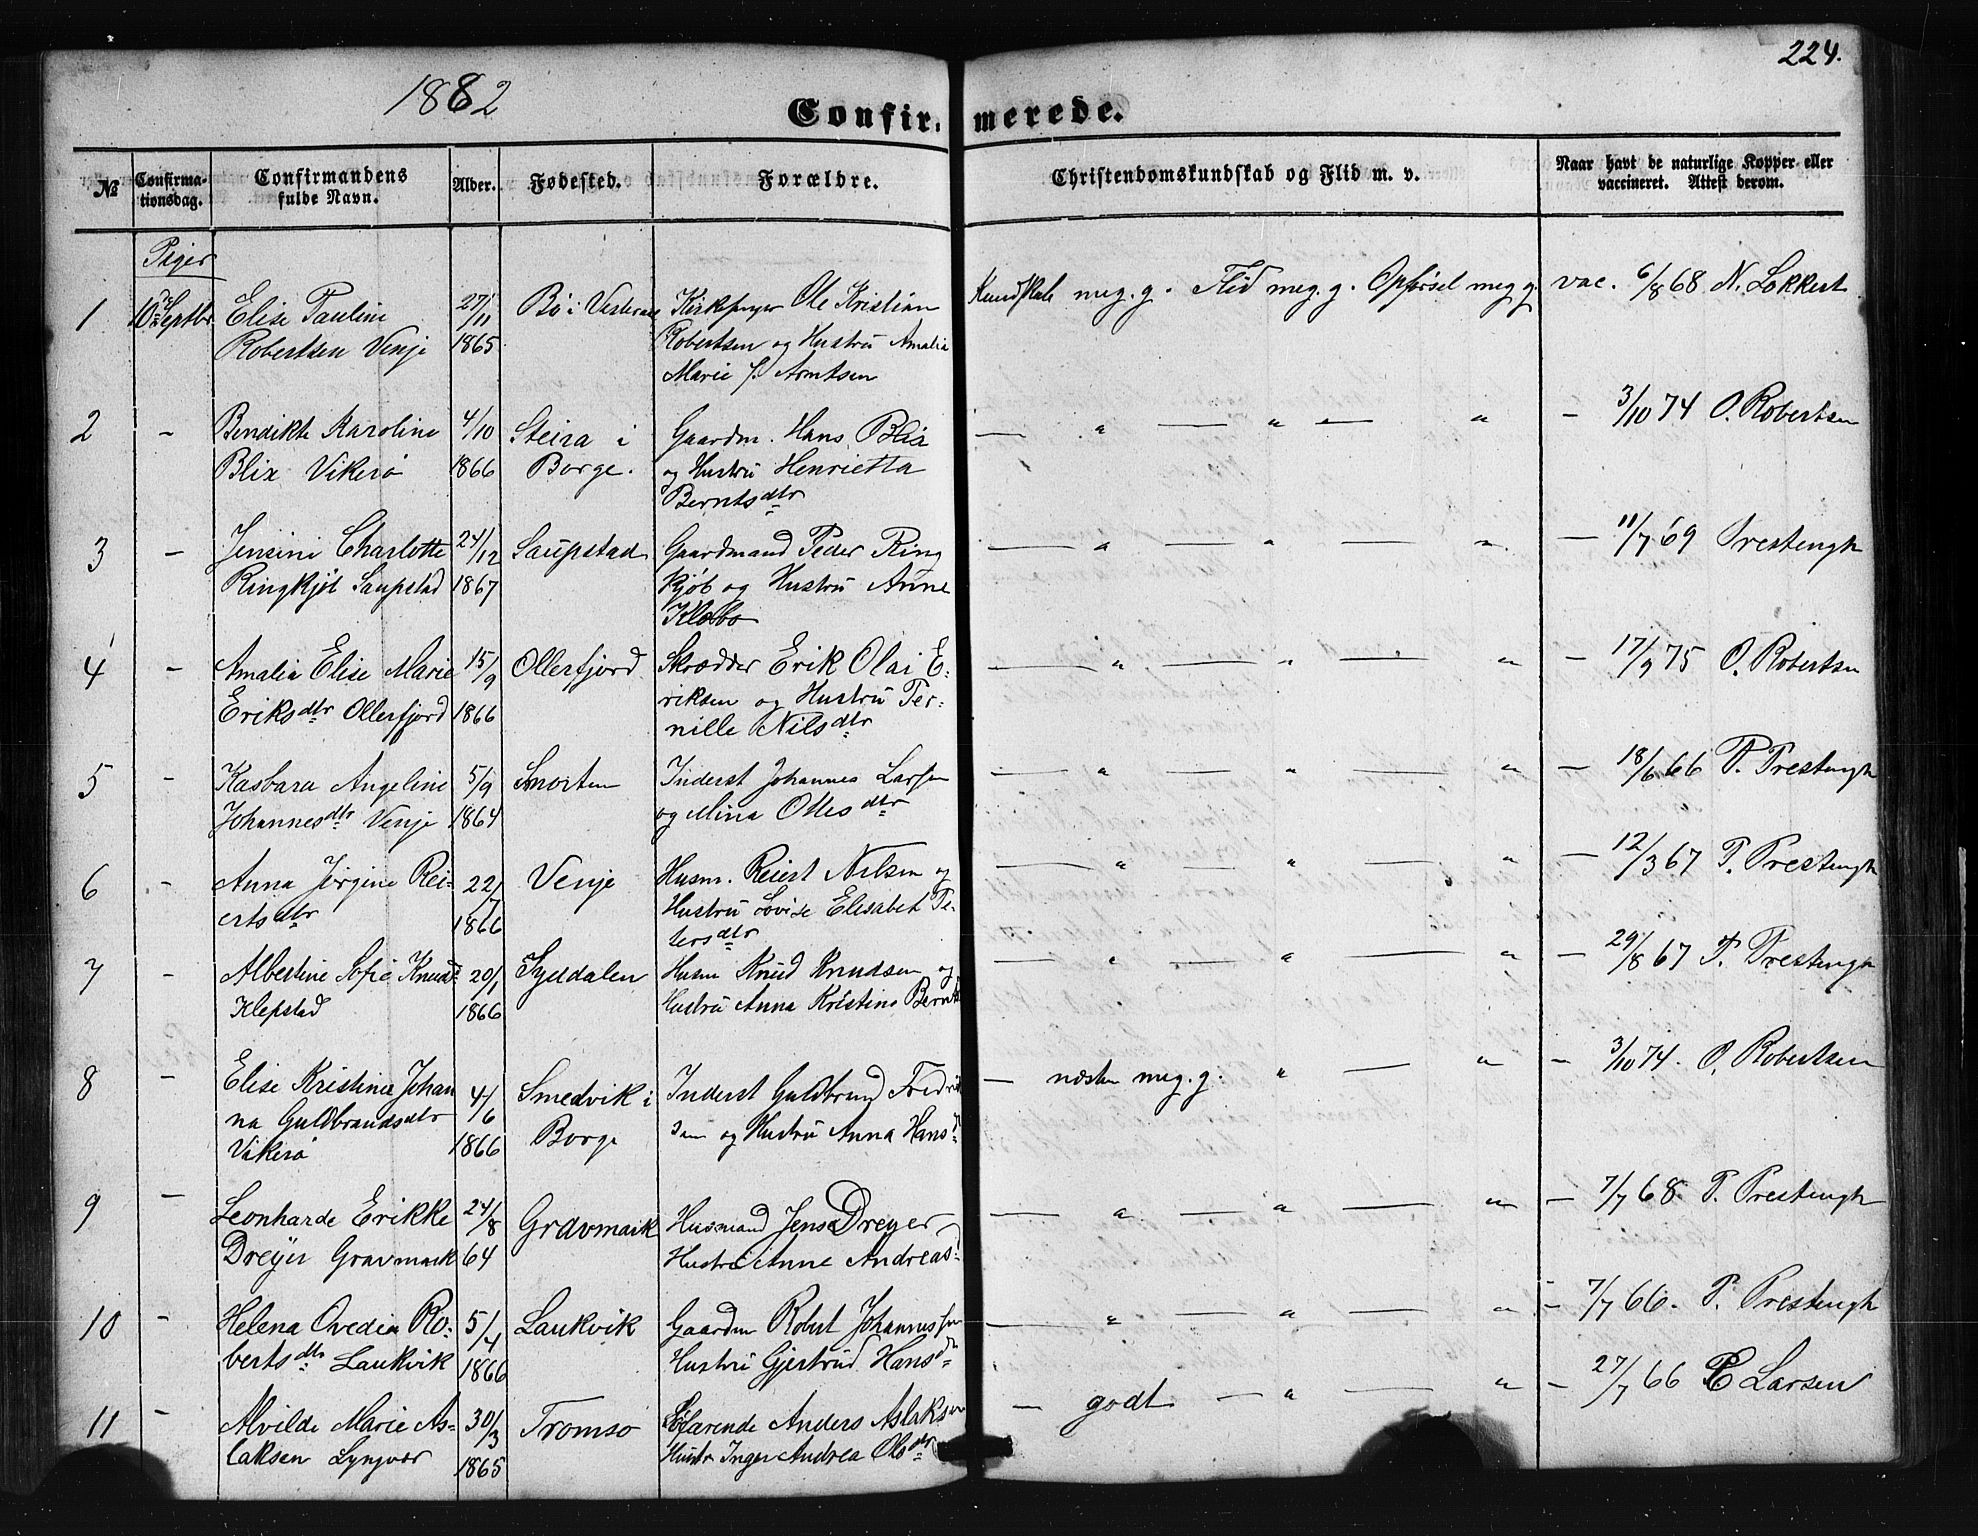 224.
1882
Confirmerede.
№
Confirma-
tionsdag.
Confirmandens
fulde Navn.
Alder.
Fødested.
Forældre.
Christendomskundskab og Flid m. v.
Naar havt de naturlige Kopper eller
vaccineret. Attest derom.
Piger
1 10de Septbr Elise Pauline 27/11 Bø i Vesteraal Kirkesanger Ole Kristian Kundskab meg. g. Flid meg. g. Opførsel meg g. vac. 6/8 68 N. Lokkert
Robertsen Venje 1865 Robertsen og Hustru Amalia
Marie f. Arntsen
2 - Bendikte Karoline 4/10 Steira i Gaardm. Hans Blix — " — " — " — 3/10 74 O. Robertsen
Blix Vikerø 1866 Borge. og Hustru Henrietta
Berntsdtr
3 - Jensine Charlotte 24/12 Saupstad Gaardmand Peder Ring — " — " — " — 11/7 69 Prestengh
Ringkjøb Saupstad 1867 kjøb og Hustru Anne
Klæbo
4 - Amalia Elise Marie 15/9 Ollerfjord Skrædder Erik Olai E- — " — " — " — 17/9 75 O. Robertsen
Eriksdtr Ollerfjord 1866 riksen og Hustru Per-
nille Nilsdtr
5 - Kasbara Angeline 5/9 Smorten Inderst Johannes Larsen — " — " — " — 18/6 66 P. Prestengh
Johannesdtr Venje 1864 og Mina Ottesdtr
6 - Anna Jørgine Rei- 22/7 Venje Husm. Reiert Nilsen og — " — " — " — 12/3 67 P. Prestengh
ertsdtr 1866 Hustru Lovise Elisabet Pe-
tersdtr
7 - Albertine Sofie Knuds- 20/1 Syddalen Husm Knud Knudsen og — " — " — " — 29/8 67 P. Prestengh
Klepstad 1866 Hustru Anna Kristine Bernts
8 - Elise Kristine Johan 4/6 Smedvik i Inderst Guldbrand Fredrik — næsten meg. g. " — " — 3/10 74. O. Robertsen
na Guldbrandsdtr 1866 Borge sen og Hustru Anna Hansd
Vikerø
9 - Leonharde Erikke 24/8 Gravmark Husmand Jens Dreyer — " — " — " — 7/7 68 P. Prestengh
Dreyer Gravmark 64 Hustru Anne Andreasd
10 - Helena Ovedia Ro- 5/4 Laukvik Gaardm Robert Johannessen — " — " — " — 7/7 66. P. Prestengh
bertsdtr Laukvik 1866 Hustru Gjertrud Hansdtr
11 - Alvilde Marie As- 30/3 Tromsø Søfarende Anders Aslaksen — godt — " — " — 27/7 66 P Larsen
laksen Lyngvær 1865 Hustr Inger Andrea Olsdtr